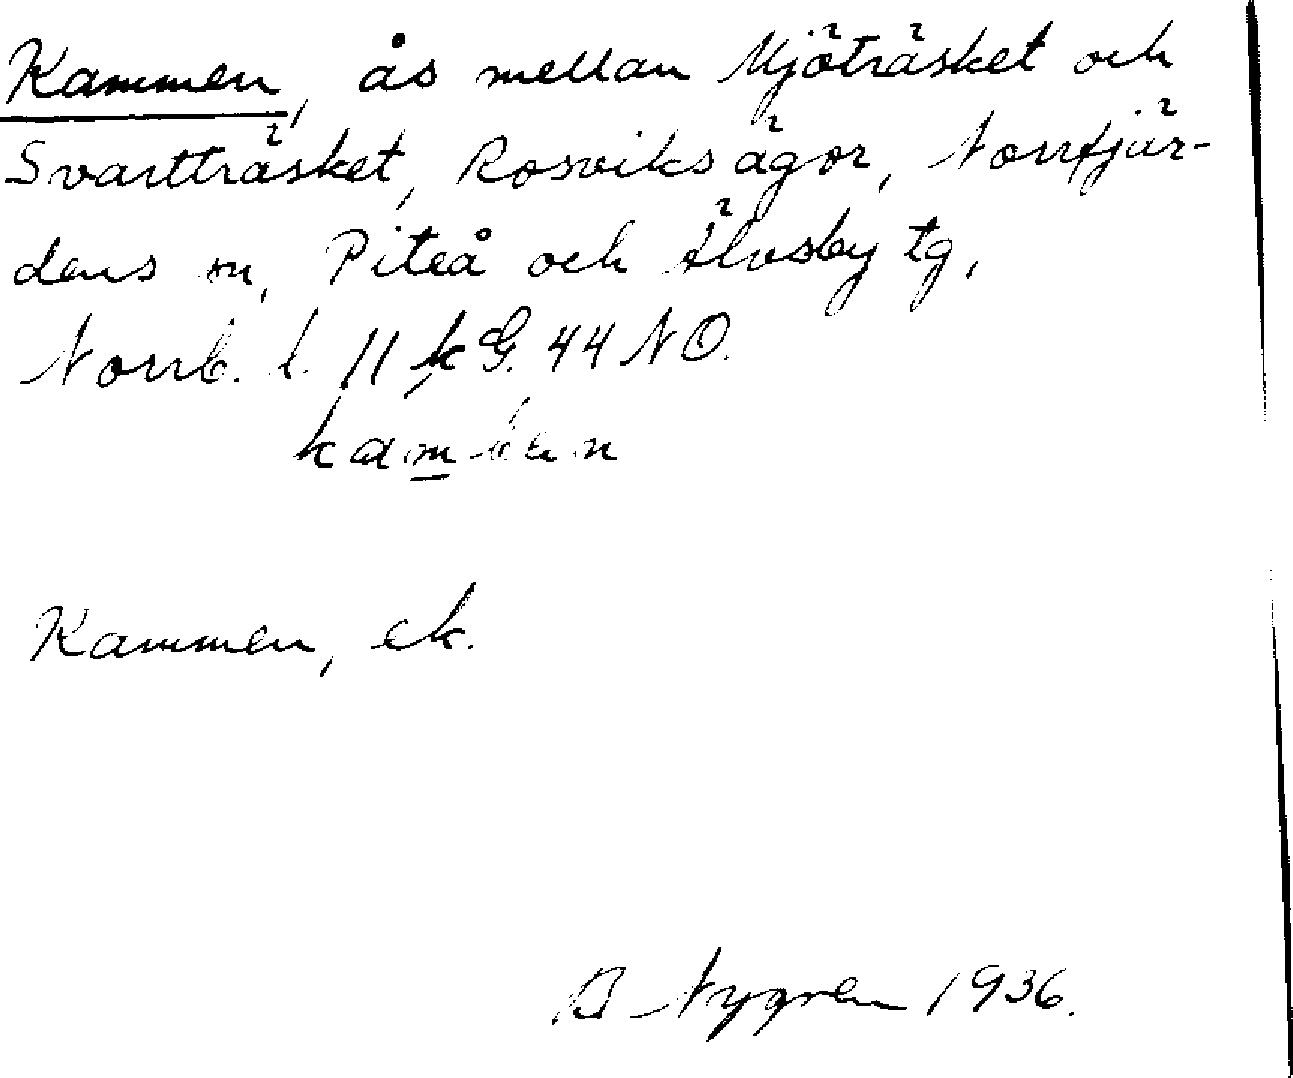 Kammen, ås mellan Mjöträsket och
Svartträsket, Rosviks ägor, Norrfjär-
dens sn, Piteå och Älvsby tg,
Norrb. l. 11 k G. 44 NO.
Kammen, ek.
B Nygren 1936.